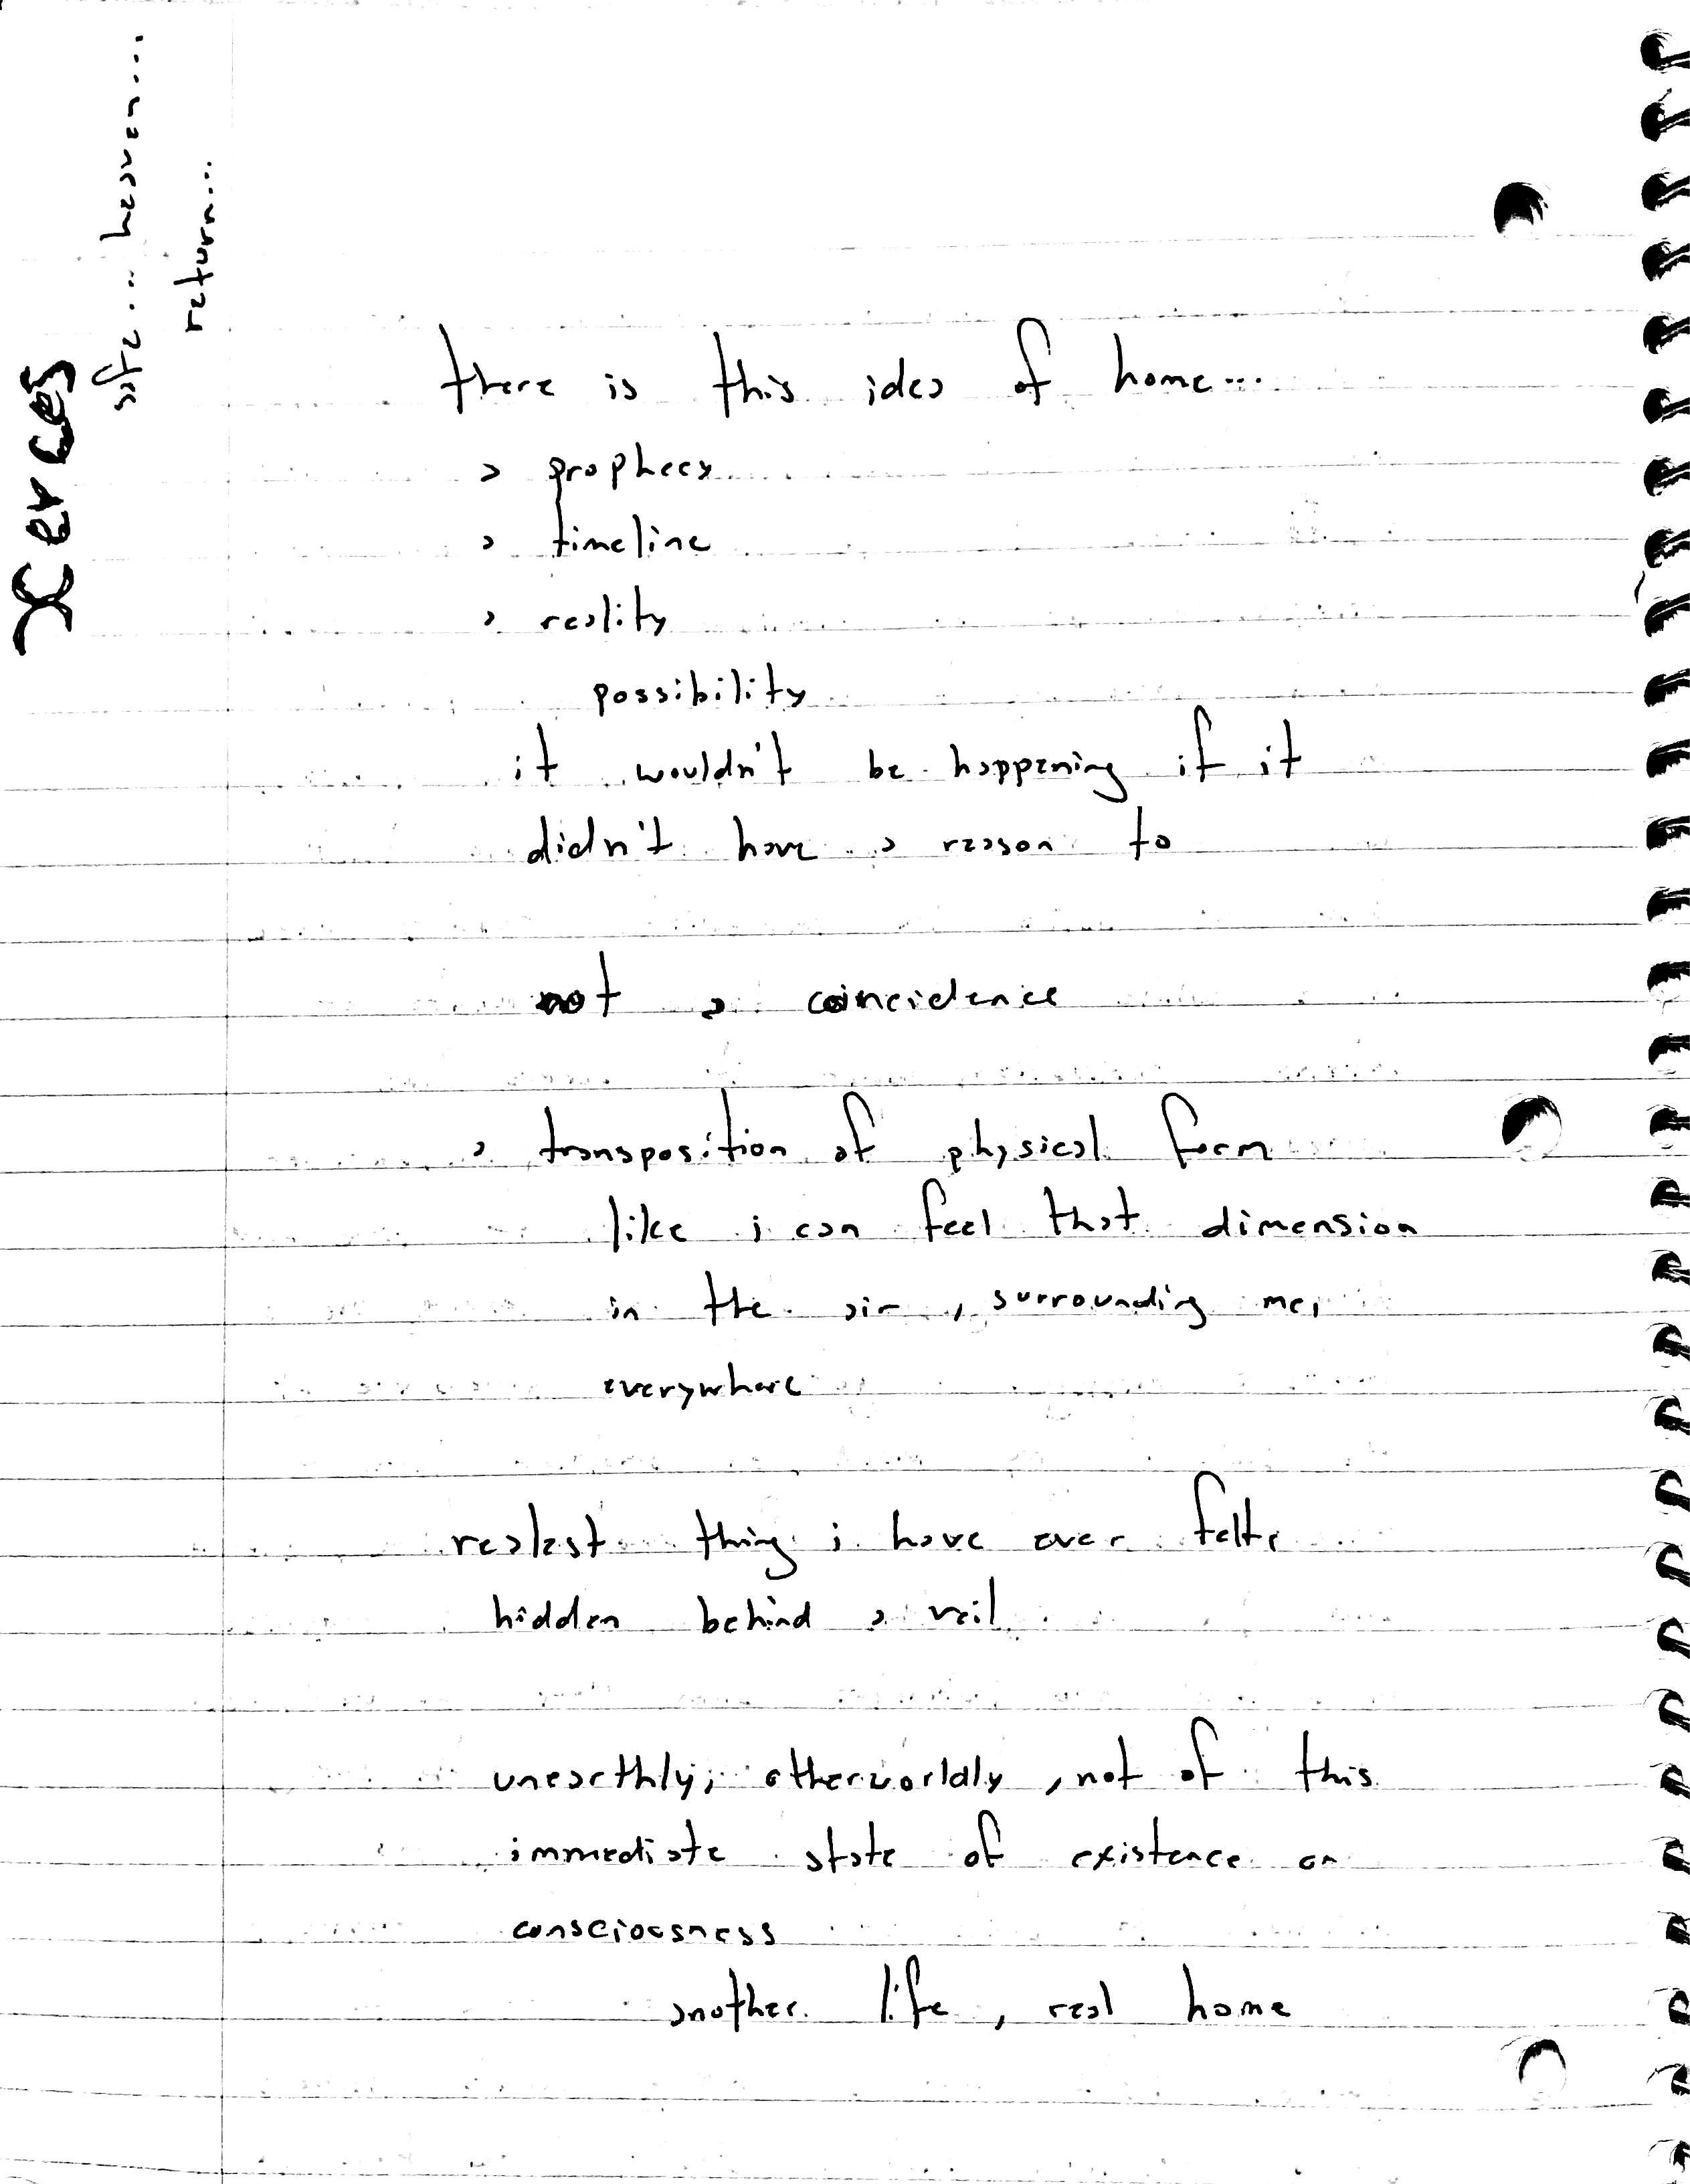 Xerces
safe... heaven...
return...
there is this idea of home...
> prophecy
> timeline
> reality
possibility
it wouldn't be happening if it
didn't have a reason to
not a coincidence
> transposition of physical form
like i can feel that dimension
in the air, surrounding me,
everywhere
realest thing i have ever felt,
hidden behind a veil
unearthly, otherworldly, not of this
immediate state of existence or
consciousness
another life, real home